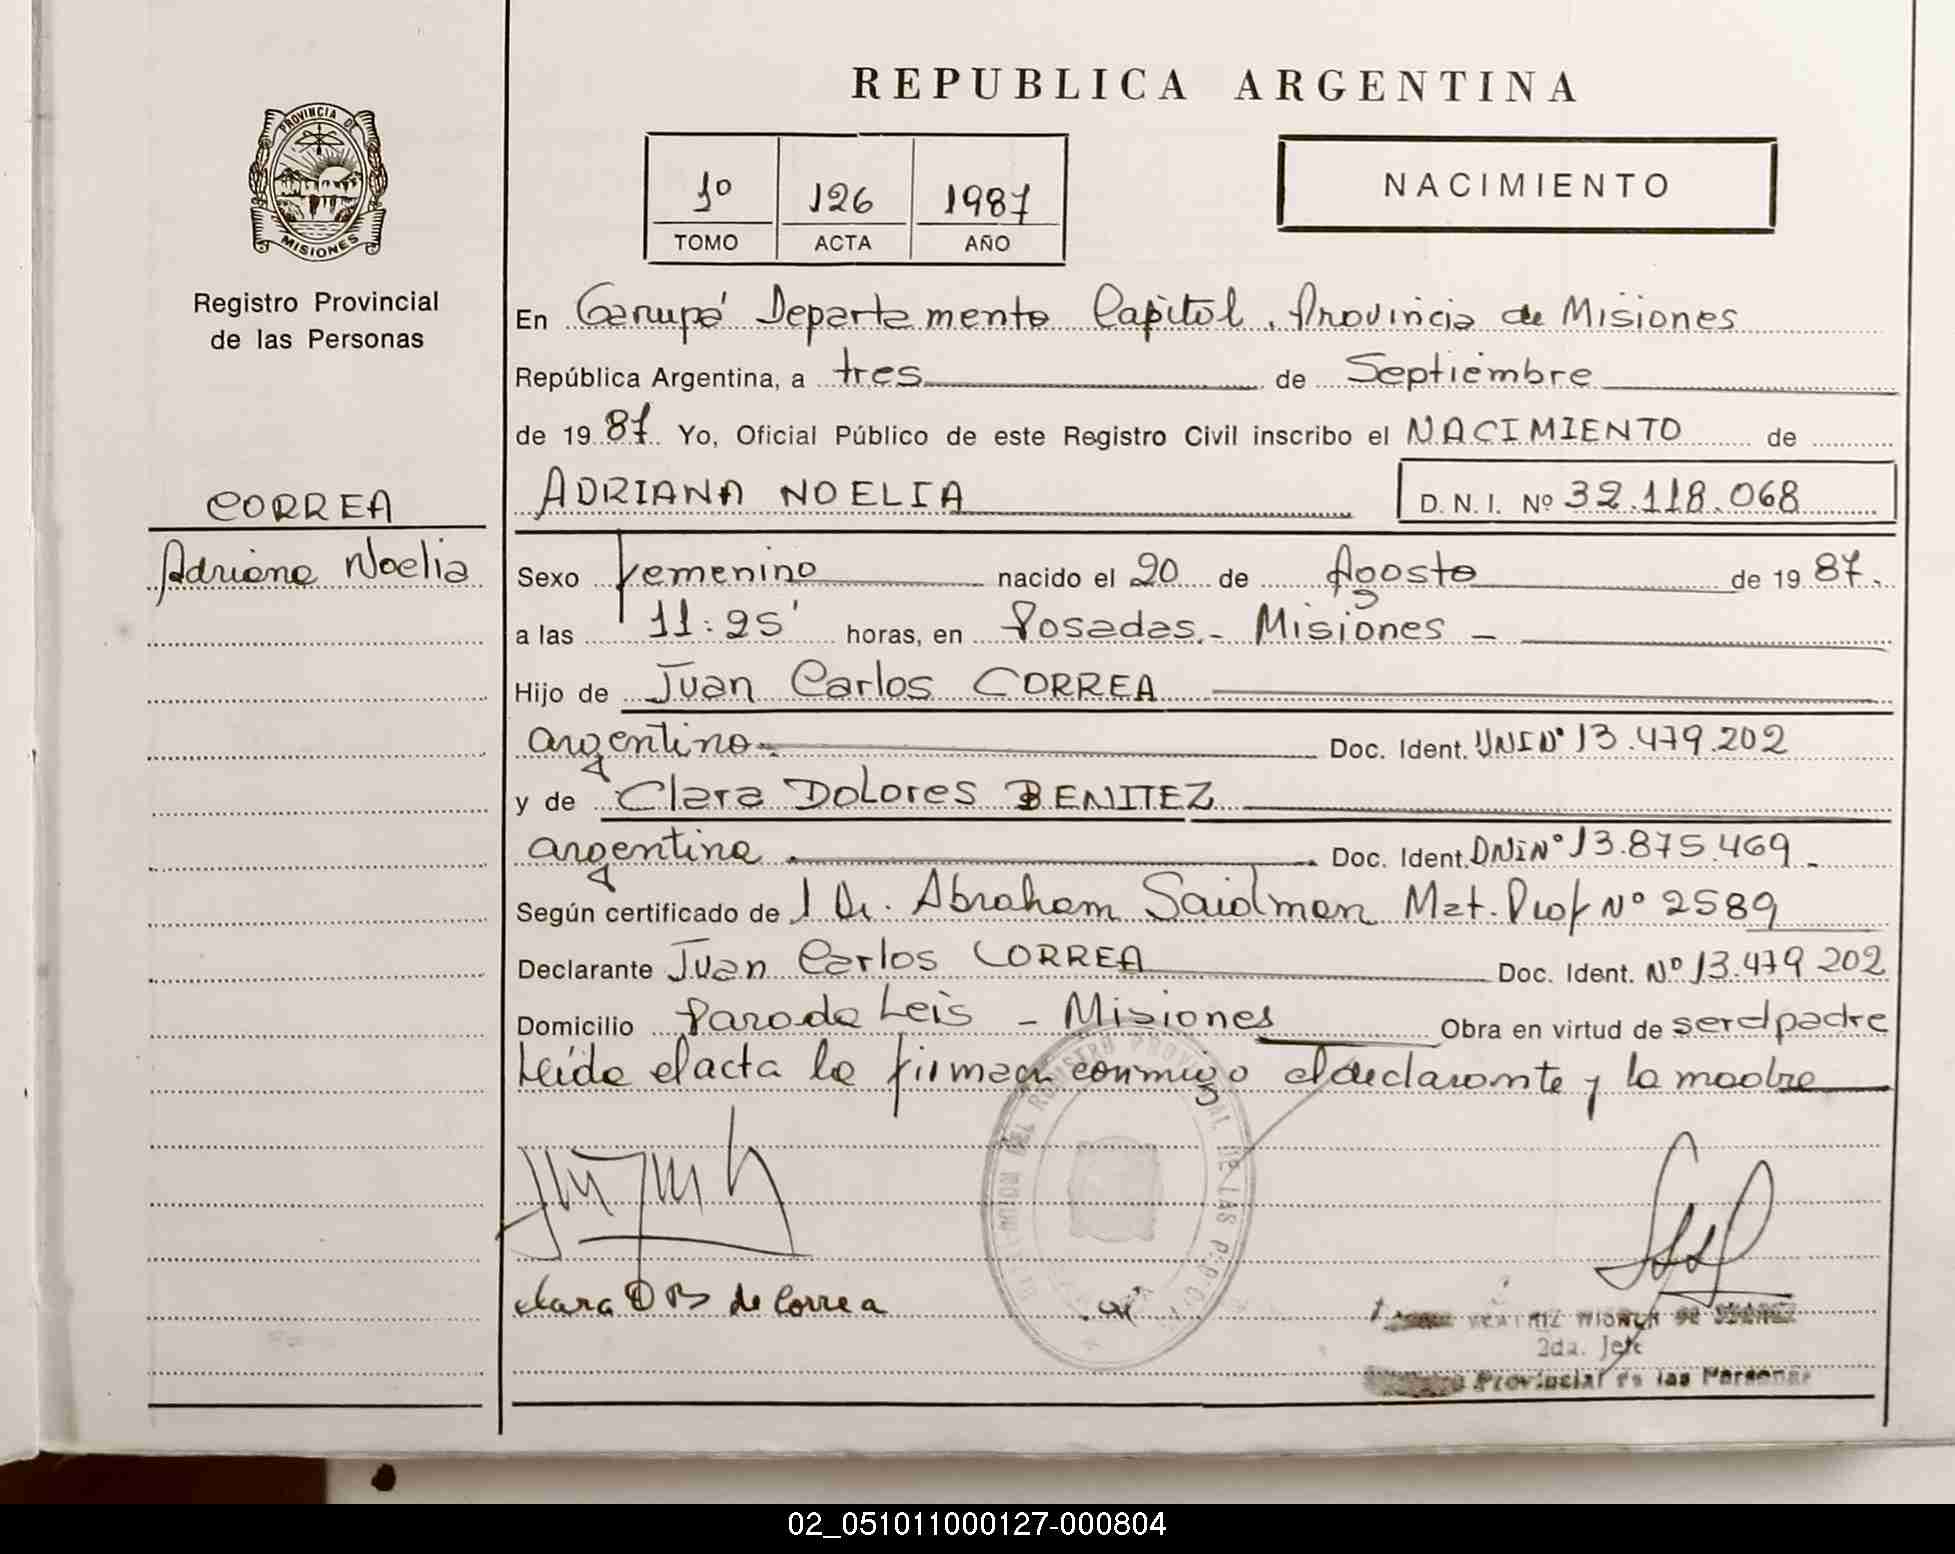 REPUBLICA ARGENTINA
PROVINCIA DE
MISIONES
Registro Provincial
de las Personas
1º 126 1987
TOMO ACTA AÑO
NACIMIENTO
En Garupá Departamento Capital, Provincia de Misiones
República Argentina, a tres de Septiembre
de 1987 Yo, Oficial Público de este Registro Civil inscribo el NACIMIENTO de
CORREA
Adriana Noelia
ADRIANA NOELIA D. N. I. Nº 32.118.068
Sexo Femenino nacido el 20 de Agosto de 1987.
a las 11:25' horas, en Posadas.- Misiones -
Hijo de Juan Carlos CORREA
argentino Doc. Ident. DNI Nº 13.479.202
y de Clara DOLORES BENITEZ
argentina Doc. Ident. DNI Nº 13.875.469
Según certificado de l Dr. Abraham Saidman Mat. Prof Nº 2589
Declarante Juan Carlos CORREA Doc. Ident. Nº 13.479.202
Domicilio Parada Leis - Misiones Obra en virtud de ser el padre
Leída el acta la firman conmigo el declarante y la madre
Clara D B de Correa
2da. Jefe
Provincial de las Personas
02_051011000127-000804